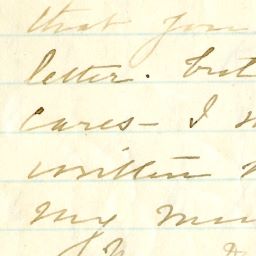 that you
letter. but
cares - I
written
my